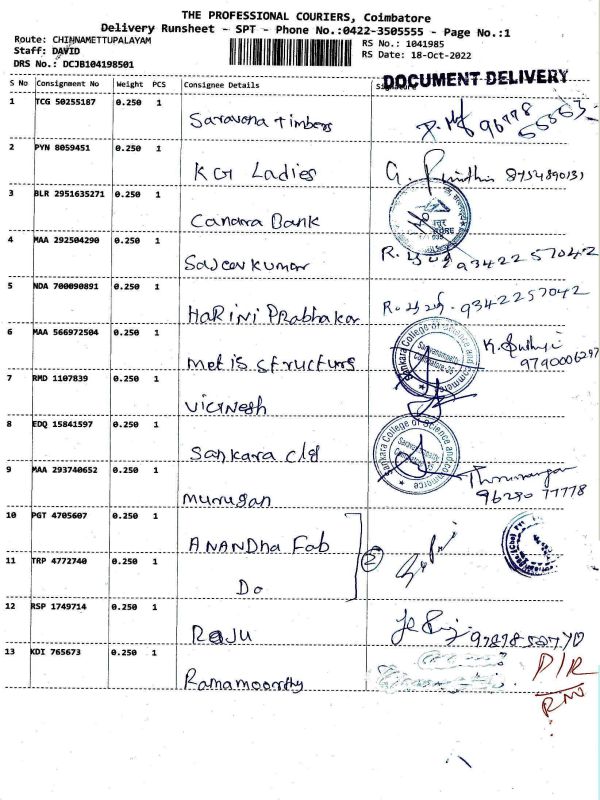 THE PROFESSIONAL COURIERS, Coimbatore
Delivery Runsheet - SPT - Phone No.:0422-3505555 - Page No.:1
Route: CHINNAMETTUPALAYAM
RS No.: 1041985
Staff: DAVID
RS Date: 18-Oct-2022
DRS No.: DCJB104198501
DOCUMENT DELIVERY
S No Consignment No Weight PCS Consignee Details Signature
1 TCG 50255187 0.250 1 Saravana timbers 96778 55563
2 PYN 8059451 0.250 1 KG Ladies G. 8754890131
3 BLR 2951635271 0.250 1 Canara Bank
4 MAA 292504290 0.250 1 Sajeevkumar R. 9342257042
5 NDA 700090891 0.250 1 HaRiNi PRabhakar R. 9342257042
6 MAA 566972504 0.250 1 Metis structurs K. 9790006297
Sankara College of Science and Commerce
Saravanampatty
Coimbatore-35
7 RMD 1107839 0.250 1 Vicinesh
8 EDQ 15841597 0.250 1 Sankara clg
Sankara College of Science and Commerce
Saravanampatty
Coimbatore-35
9 MAA 293740652 0.250 1 Murugan 96290 77778
10 PGT 4705607 0.250 1 ANANDha Fab 2
11 TRP 4772740 0.250 1 Do
12 RSP 1749714 0.250 1 RaJU
13 KDI 765673 0.250 1 Ramamoorthy D/R